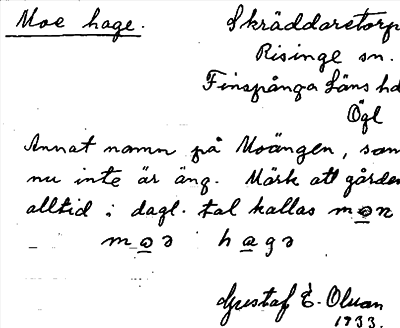 Moe hage.
Skräddaretorp
Risinge sn.
Finspånga Läns hd
Ögl
Annat namn på Moängen, som
nu inte är äng. Märk att gården
alltid i dagl. tal kallas mo̲n
mo̲ə ha̲gə
Gustaf E. Olman
1933.